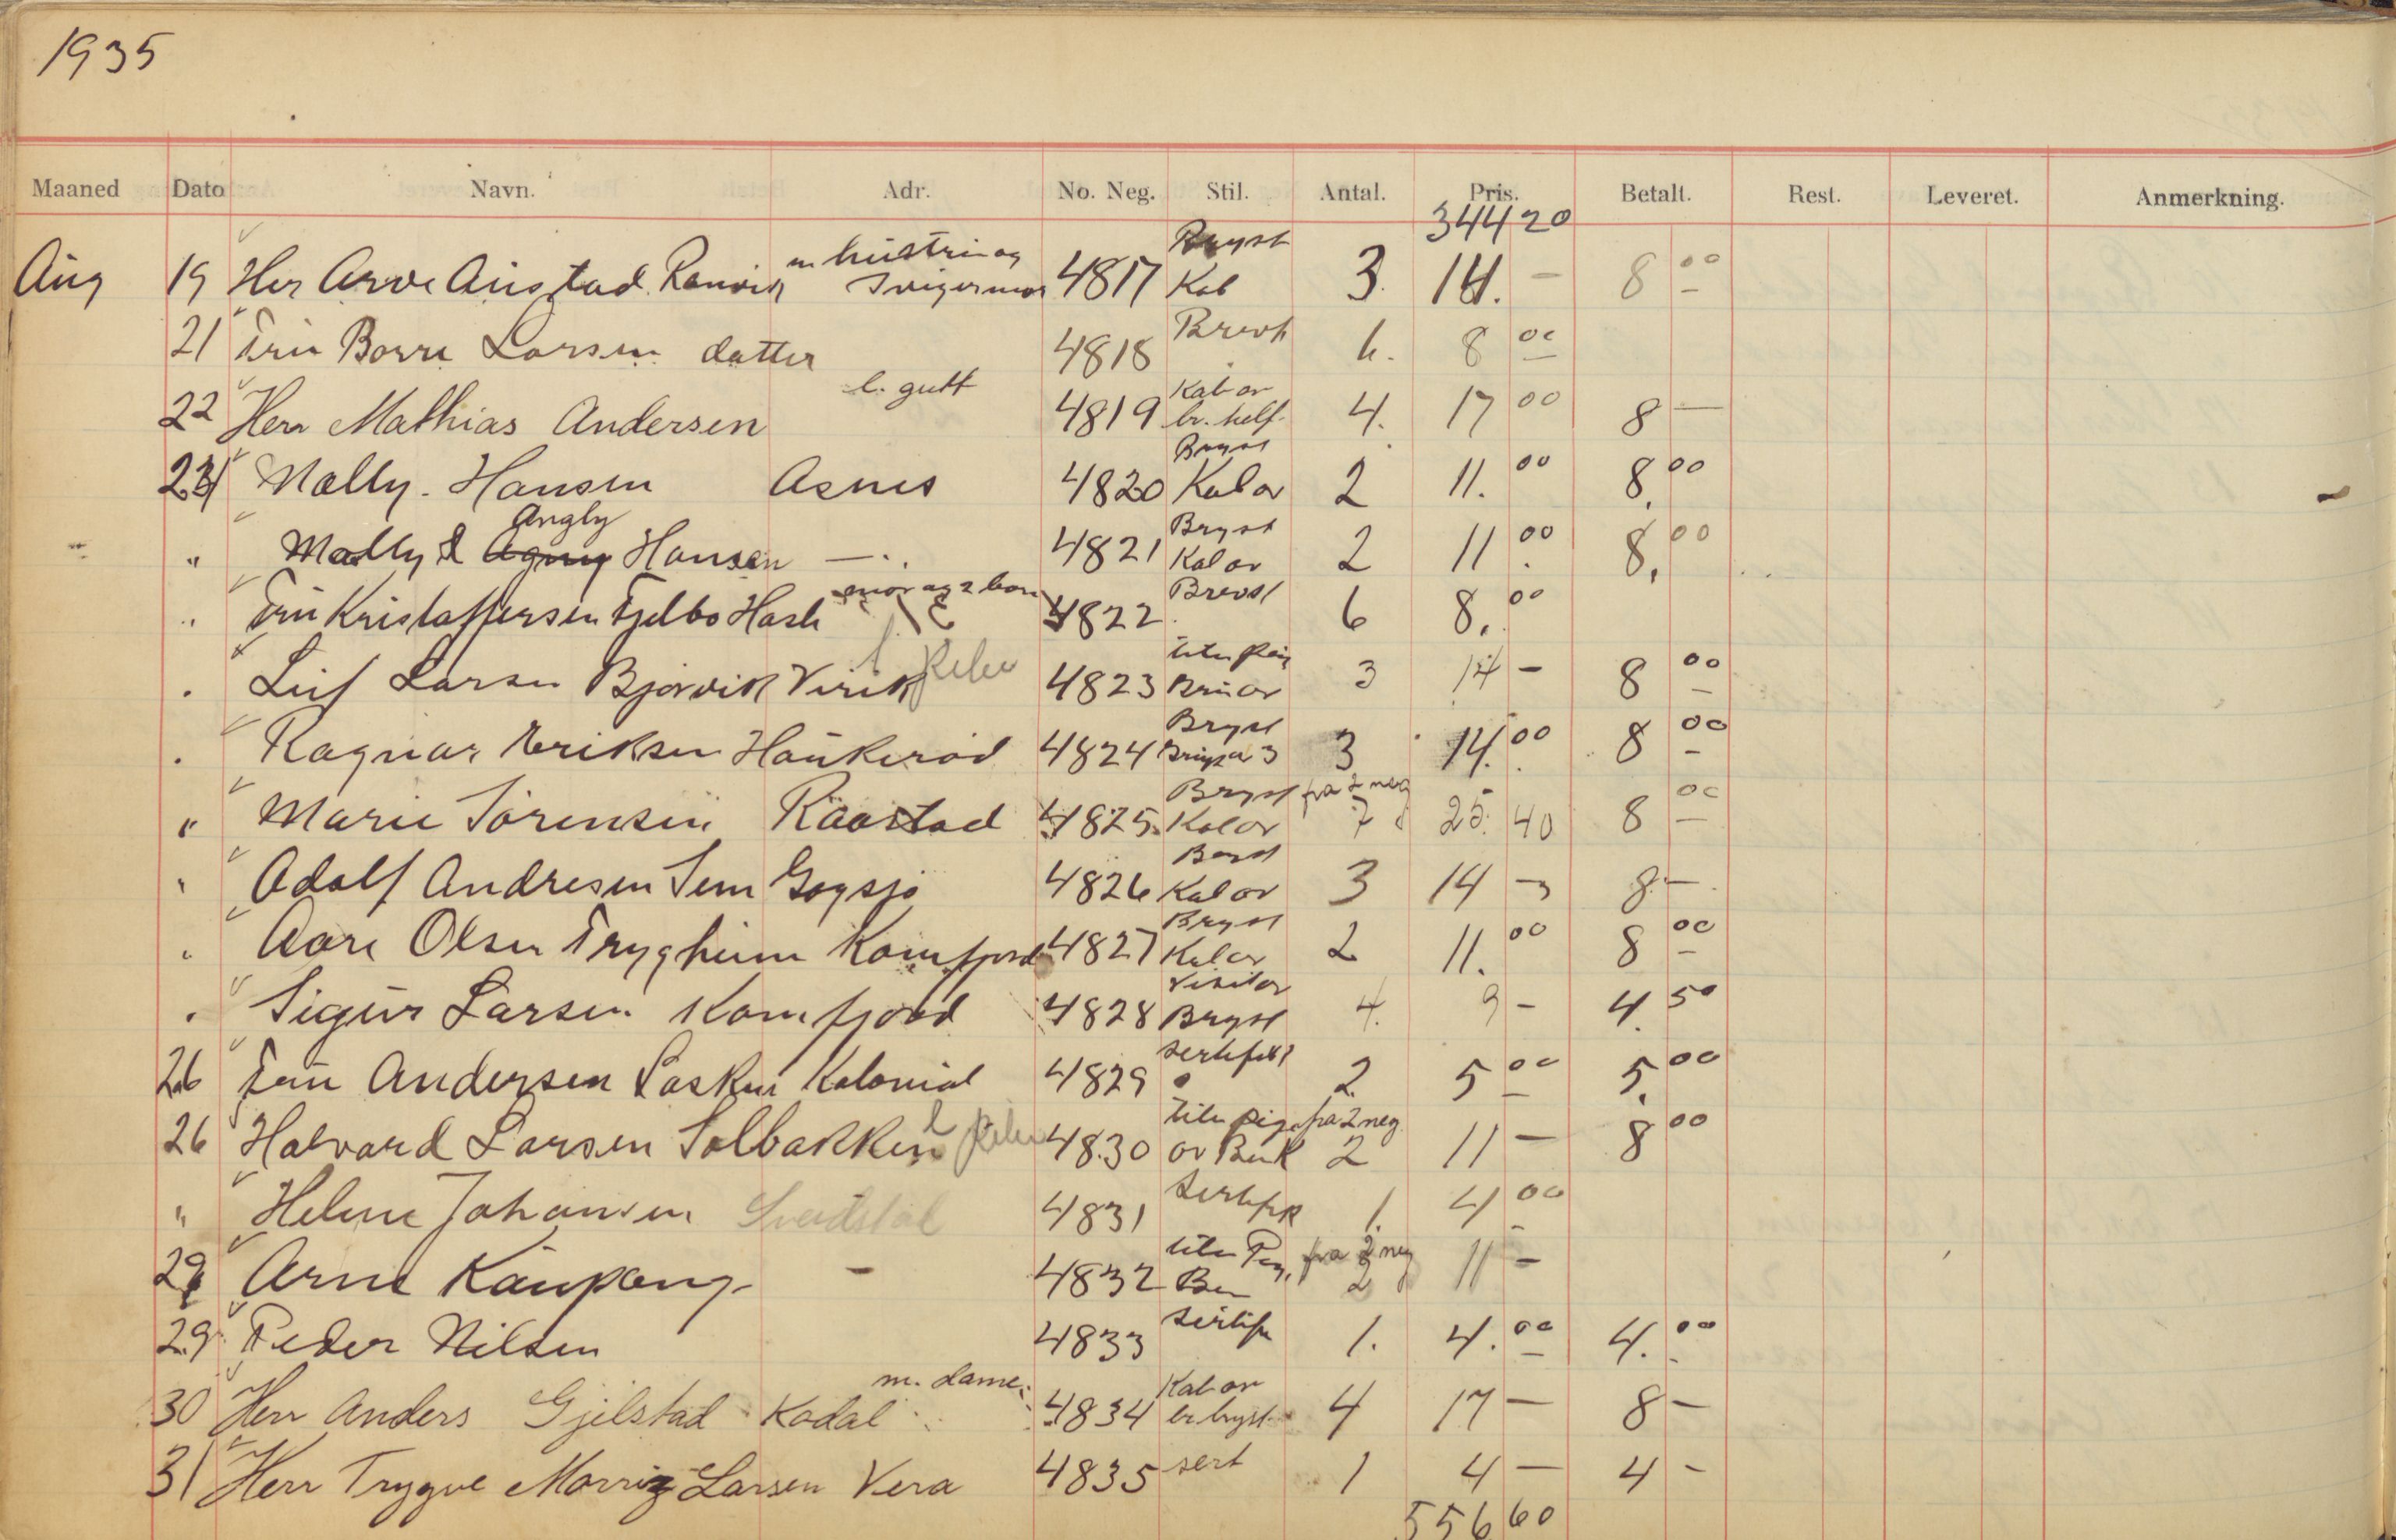 1935
Maaned Dato Navn. Adr. No. Neg. Stil. Antal. Pris. Betalt. Rest. Leveret. Anmerkning.
344 20
Aug 19 Her Arve Austad Ranvik m hustru og Svigermor 4817 Bryst Kab 3. 14. — 8 00
21 Fru Borre Larsen datter 4818 Brevk 6. 8 00
22 Herr Mathias Andersen l. gutt 4819 Kab or br. helf. 4. 17 00 8 —
23 Mally. Hansen Asnes 4820 Bryst Kab or 2 11. 00 8. 00
" Mally & Agny Angly Hansen — . 4821 Bryst Kab or 2 11. 00 8. 00
" Fru Kristaffersen Fjelbo Hasle mor og 2 barn 4822 Brevk 6 8. 00
" Leif Larsen Bjørvik Virik 4823 3 14 — 8 00
" Ragnar Eriksen Haukerød 4824 Bryst 3 14. 00 8 00
" Marie Sørensen Raastad 4825 Bryst Kab or fra 2 neg 7 25. 40 8 00
" Adolf Andresen Sem Gogsjø 4826 Bryst Kab or 3 14 — 8 —
" Aare Olsen Trygheim Kamfjord 4827 Bryst Kab or 2 11. 00 8 00
" Sigur Larsen Kamfjord 4828 Visit or Bryst 4. 9 — 4. 50
26 Fru Andersen Lasken Kolonial 4829 sertifikt 2 5 00 5. 00
26 Halvard Larsen Solbakken 4830 fra 2 neg. 2 11 — 8 00
" Helene Johansen 4831 Sertifik 1. 4 00
29 Arne Kaupang — 4832 fra 2 neg 2 11 —
29 Peder Nilsen 4833 sertifk 1. 4. 00 4. 00
30 Herr Anders Gjelstad Kodal m. dame. 4834 Kab or br bryst 4 17 — 8 —
31 Herr Trygve Morriz Larsen Vera 4835 sert 1 4 — 4 —
556 60